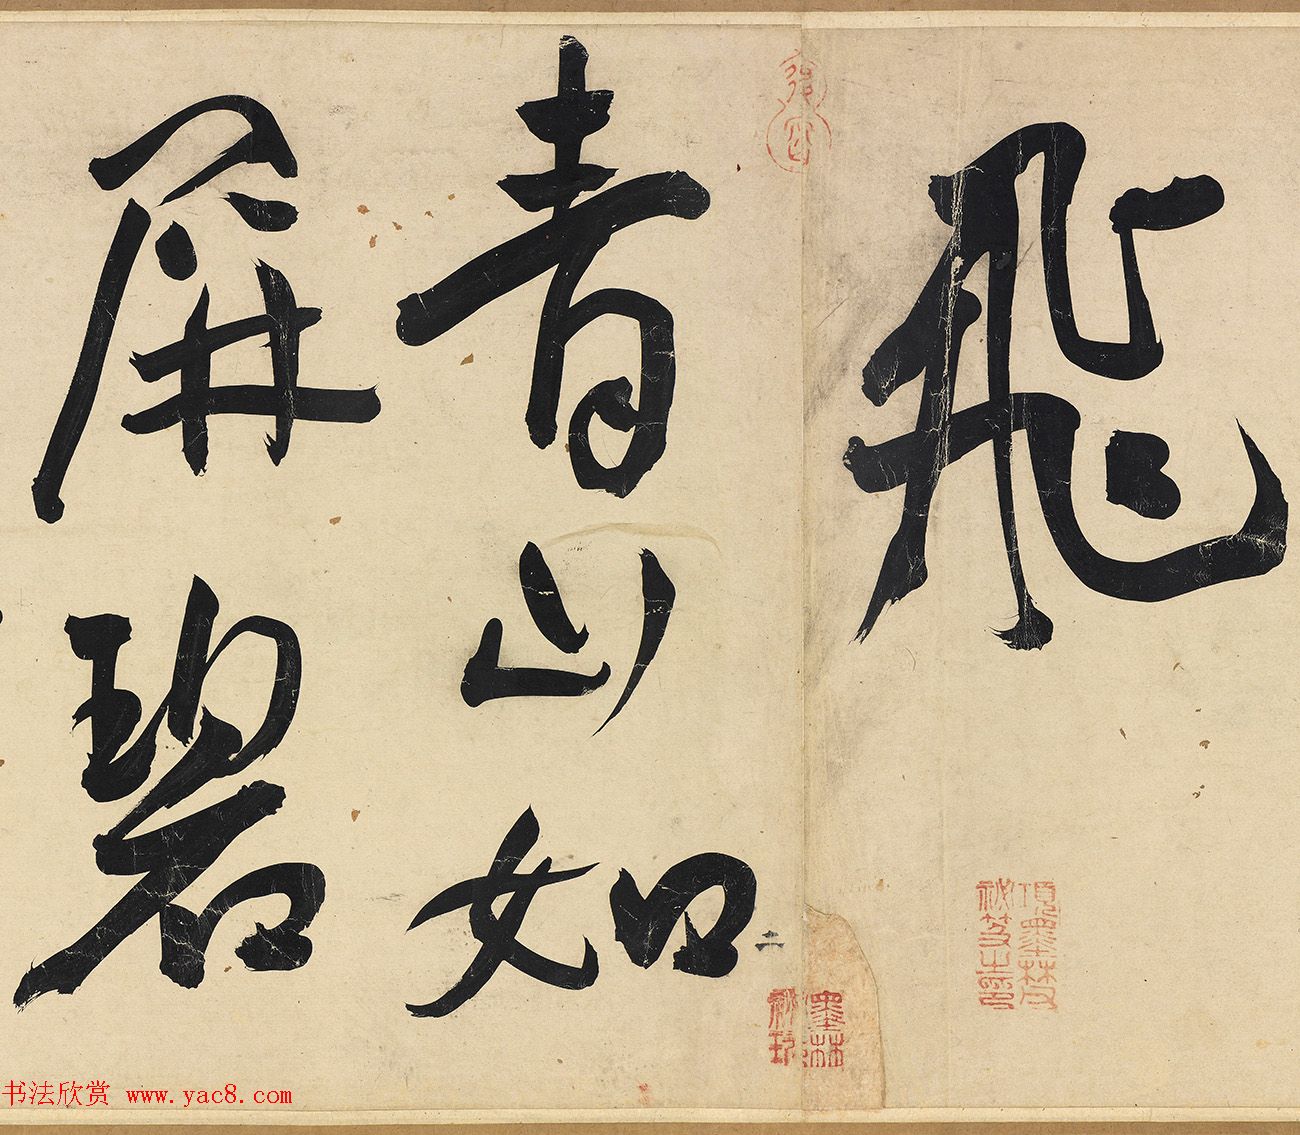 飛
青山如
屏碧
項墨林父
祕笈之印
墨林
祕玩
书法欣赏 www.yac8.com